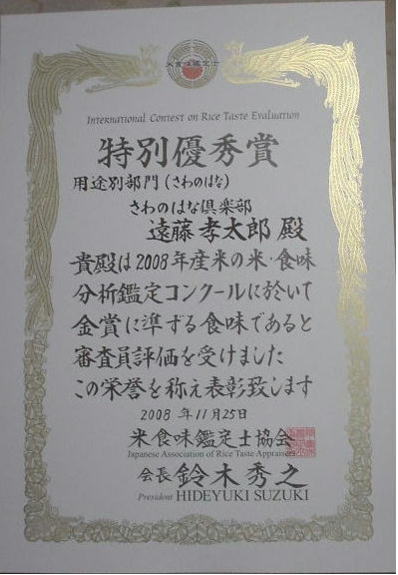 米食味鑑定士
International Contest on Rice Taste Evaluation
特別優秀賞
用途別部門(さわのはな)
さわのはな倶楽部
遠藤孝太郎 殿
貴殿は2008年産米の米・食味
分析鑑定コンクールに於いて
金賞に準ずる食味であると
審査員評価を受けました
この栄誉を称え表彰致します
2008年11月25日
米・食味鑑定士協会
Japanese Association of Rice Taste Appraisers
会長 鈴木秀之
President HIDEYUKI SUZUKI